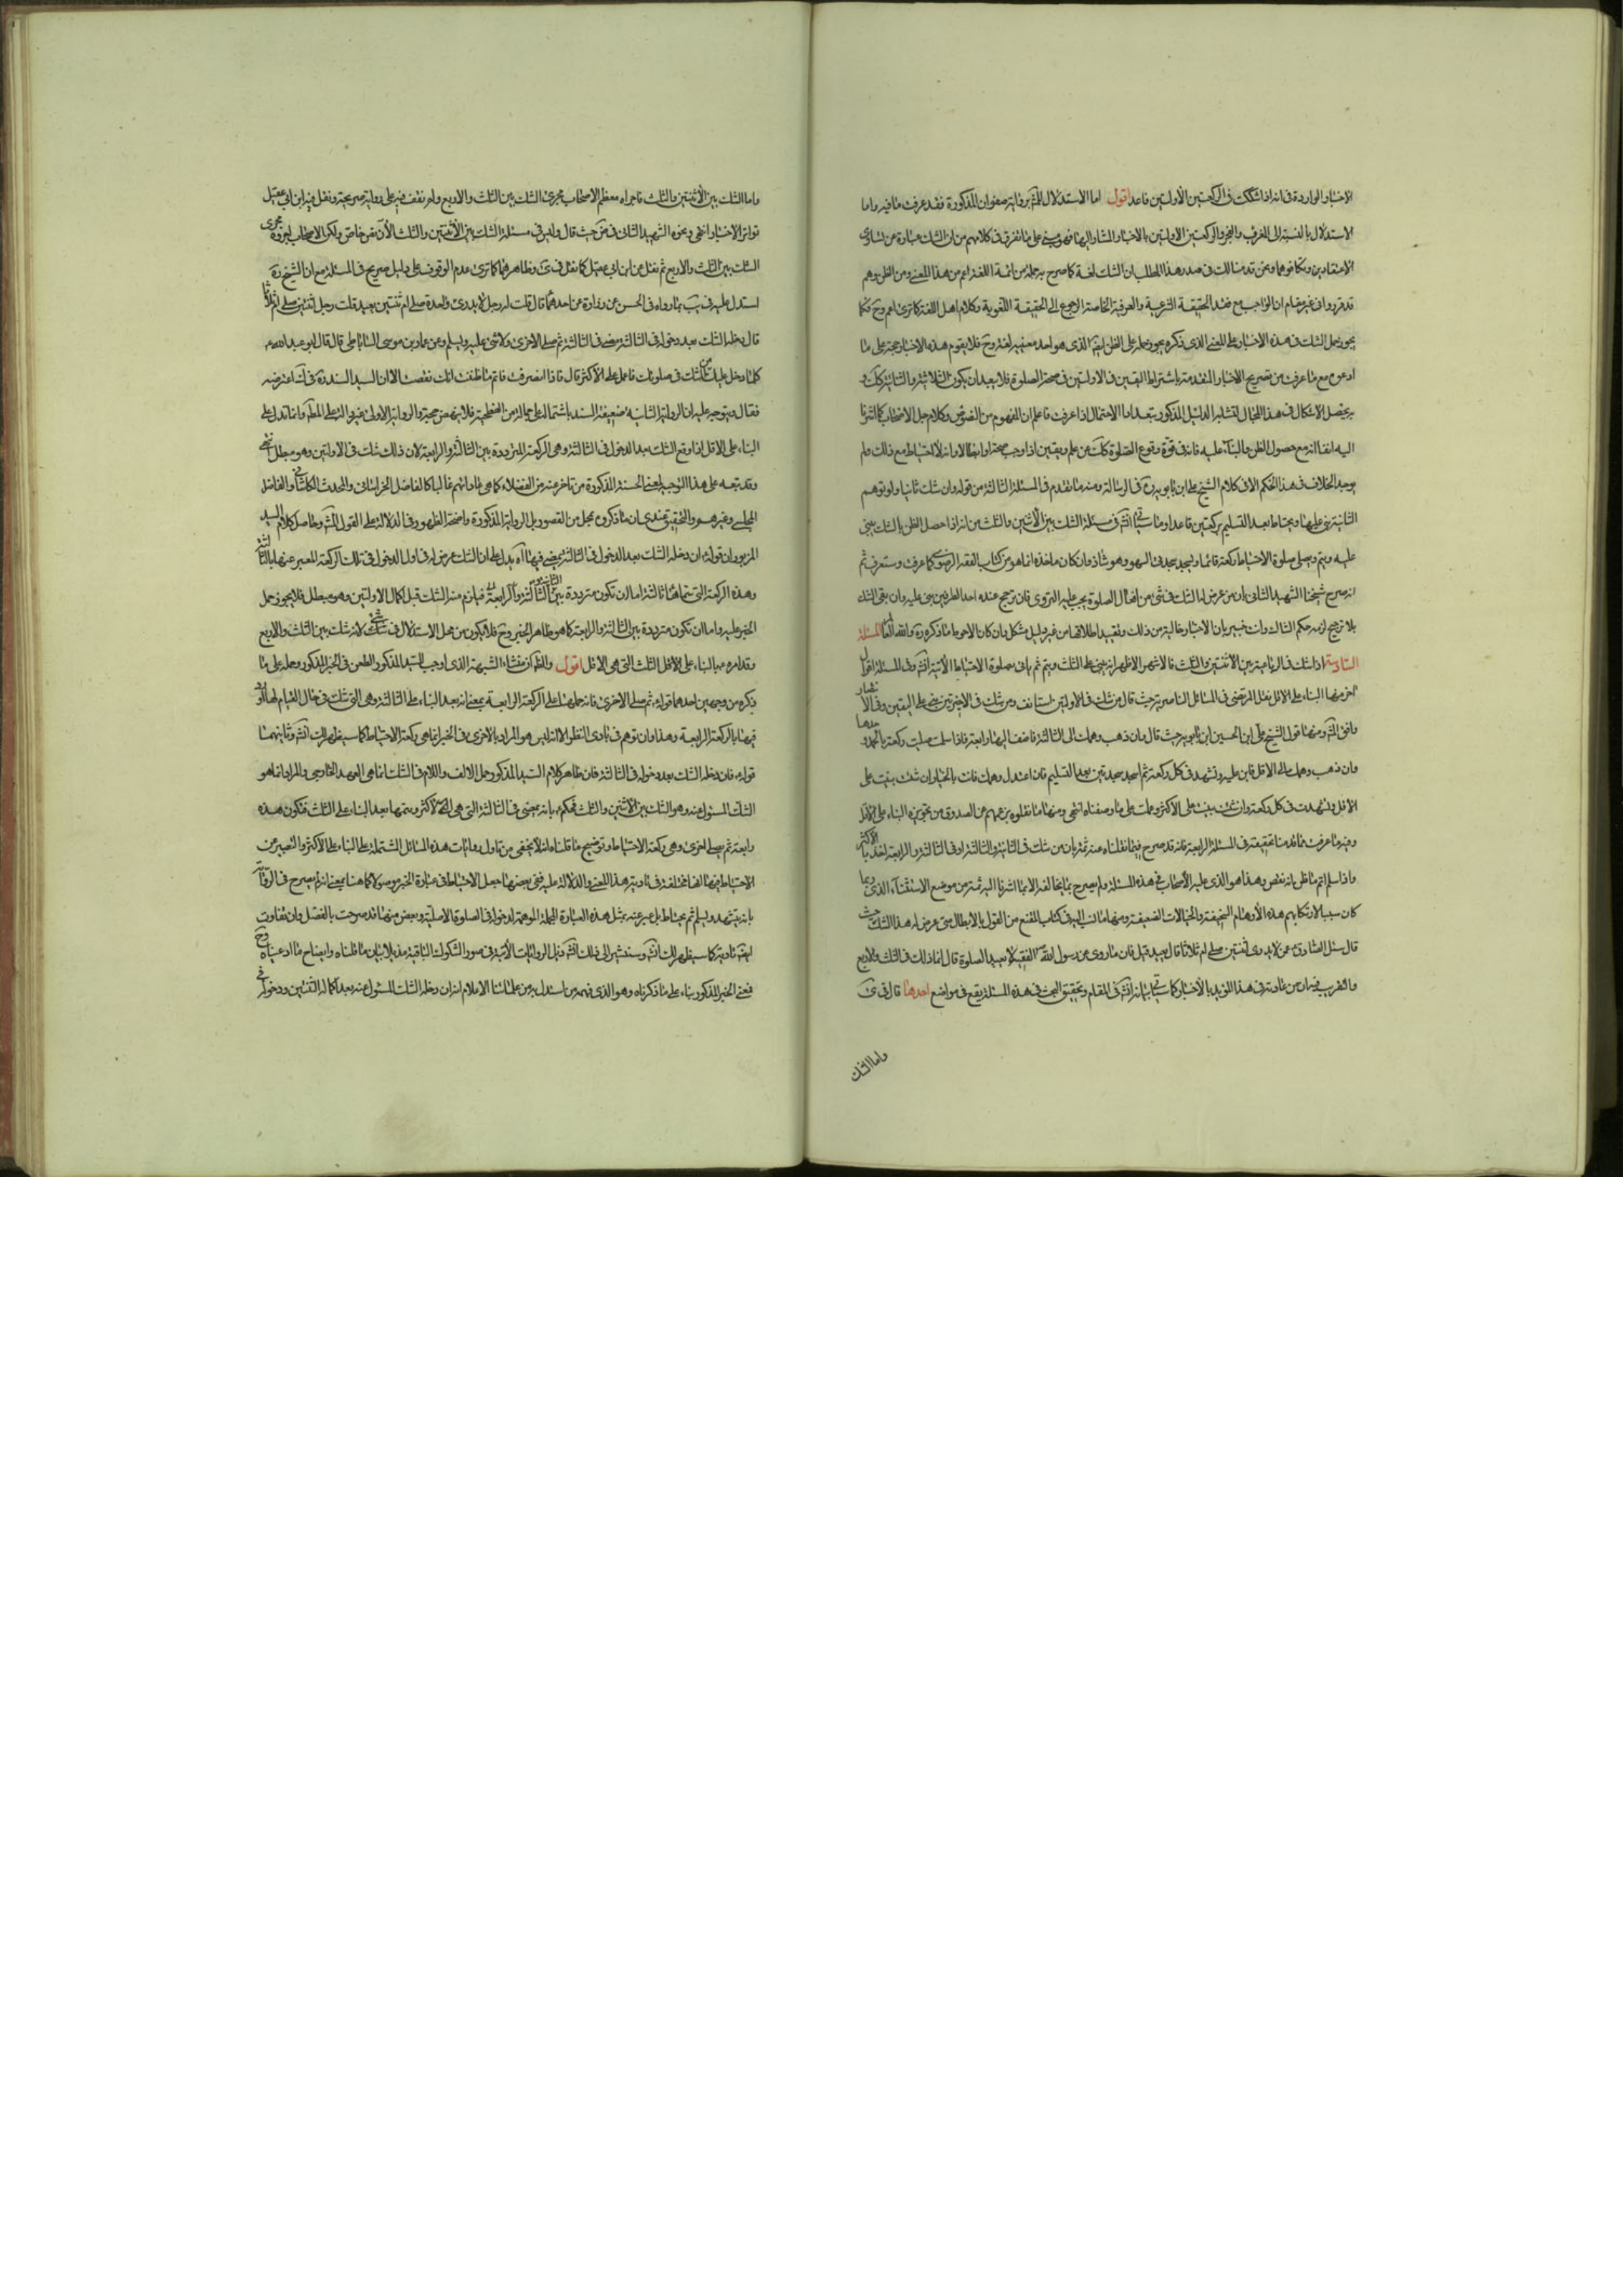 الاخبار الواردة فى انه اذا شككت فى الركعتين الأولتين فاعد اقول اما الاستدلال للمش برواية صفوان المذكورة فقد عرفت ما فيه واما
الاستدلال بالنسبة الى المغرب والفجر والركعتين الاولتين بالاخبار المشار اليها فهو مبنى على ما تفرق فى كلامهم من ان الشك عبارة عن تساوى
الاعتقادين وتكافوهما ونحن قد منا لك فى صدر هذا المطلب ان الشك لغة كما صرح به جملة من ائمة اللغة اعم من هذا المعنى ومن الظن وهم
قد قرروا فى غير مقام ان الواجب مع فقد الحقيقة الشرعية والعرفية الخاصة الرجوع الى الحقيقة اللغوية وكلام اهل اللغة كما ترى اعم وح فكما
يجوز حمل الشك فى هذه الاخبار على المعنى الذى ذكره يجوز حمله على الظن ايضا الذى هو احد معنييه لغة وح فلا يقوم هذه الاخبار حجة على ما
ادعوه مع ما عرفت من تصريح الاخبار المتقدمة باشتراط اليقين فى الاولتين فى صحة الصلوة فلا يبعد ان يكون الثلاثية والثنائية كك و
به يحصل الاشكال فى هذا المجال لتشابه الدليل المذكور بتعدد الاحتمال اذا عرفت فاعلم ان المفهوم من النصوص وكلام جل الاصحاب كما اشرنا
اليه انفا انه مع حصول الظن والبناء عليه فانه فى قوة وقوع الصلوة كك عن علم ويقين اذا وجب صحة او ابطالا وانه لا احتياط مع ذلك ولم
يوجد الخلاف فى هذا الحكم الا فى كلام الشيخ على ابن بابويه ره فى الرسالة ومنه ما تقدم فى المسئلة الثالثة من قوله وان شك ثانيا ولو توهم
الثانية بنى عليها ويحتاط بعد التسليم بركعتين قاعدا وما سيأتى انش فى مسئلة الشك بين الاثنين والثلث من انه اذا حصل الظن بالثلث يبنى
عليه ويتم ويصلى صلوة الاحتياط ركعة قائما ويسجد سجدتى السهو وهو شاذ وان كان ماخذه انما هو من كتاب الفقه الرضوى كما عرفت وستعرف ثم
انه صرح شيخنا الشهيد الثانى بان من عرض له الشك فى شئ من افعال الصلوة يجب عليه التروى فان ترجح عنده احد الطرفين بنى عليه وان بقى الشك
بلا ترجيح لزمه حكم الشاك وانت خبير بان الاخبار خالية من ذلك وتقييد اطلاقها من غير دليل مشكل وان كان الاحوط ما ذكره ره والله العالم المسئلة
السادسة اذا شك فى الرباعية بين الاثنتين والثلث فالاشهر الاظهر انه يبنى على الثلث ويتم ثم ياتى بصلوة الاحتياط الآتية انش وفى المسئلة اقوال
اخر منها البناء على الاقل نقل المرتضى فى المسائل الناصرية حيث قال من شك فى الاولتين استانف ومن شك فى الاخيرتين بنى على اليقين وفى الانتصار
وافق المش ومنها قول الشيخ على ابن الحسين ابن بابويه حيث قال وان ذهب وهمك الى الثالثة فاضف اليها رابعة فاذا سلمت صليت ركعة بالحمد وحدها
وان ذهب وهمك الى الاقل فابن عليه وتشهد فى كل ركعة ثم اسجد سجدتين بعد التسليم فان اعتدل وهمك فانت بالخيار ان شئت بنيت على
الاقل وتشهدت فى كل ركعة وان شئت بنيت على الاكثر وعملت على ما وصفناه انتهى ومنها ما نقلوه بزعمهم عن الصدوق من تجويزه البناء على الاقل
وفيه ما عرفت مما قدمنا تحقيقه فى المسئلة الرابعة فانه قد صرح فيما نقلناه عنه ثمة بان من شك فى الثانية والثالثة او فى الثالثة والرابعة اخذ بالاكثر
واذا سلم اتم ما ظن انه نقص وهذا هو الذى عليه الأصحاب فى هذه المسئلة ولم يصرح بما يخالفه الا بما اشرنا اليه ثمة من موضع الاشتباه الذى ربما
كان سببا لارتكابهم هذه الأوهام السخيفة والخيالات الضعيفة ومنها ما نسب اليه فى كتاب المقنع من القول بالابطال متى عرض له هذا الشك حيث
قال سئل الصادق ع عمن لا يدرى اثنتين صلى ام ثلاثا قال يعيد قيل فان ما روى عن رسول الله ص الفقيه لا يعيد الصلوة قال انما ذلك فى الثلث والاربع
والتقريب فيها من عادته فى هذا الفريد بالأخبار كما سيأتى بيانه انش فى المقام وتحقيق البحث فى هذه المسئلة يقع فى مواضع احدها قال فى ى
واما الشك
واما الشك بين الأثنتين والثلث فاجراه معظم الاصحاب مجرى الشك بين الثلث والاربع ولم نقف فيه على رواية صريحة ونقل فيه ابن ابى عقيل
تواتر الاخبار انتهى ونحوه الشهيد الثانى فى ض حيث قال وليس فى مسئلة الشك بين الأثنتين والثلث الأن نص خاص ولكن الاصحاب اجروه مجرى
الشك بين الثلث والاربع ثم نقل عن ابن ابى عقيل كما نقل فى ى وظاهرهما كما ترى عدم الوقوف على دليل صريح فى المسئلة مع ان الشيخ ره
استدل عليه فى يب بما رواه فى الحسن عن زرارة عن احدهما قال قلت له رجل لا يدرى واحدة صلى ام ثنتين يعيد قلت رجل اثنتين صلى ام ثلاثا
قال دخله الشك بعد دخوله فى الثالثة مضى فى الثالثة ثم صلى الاخرى ولا شئ عليه ويسلم وعن عمار بن موسى الساباطى قال قال ابو عبد الله ع
كلما دخل عليك من الشك فى صلوتك فاعمل على الأكثر قال فاذا انصرفت فاتم ما ظننت انك نقصت الا ان السيد السند ره فى ك اعترضه
فقال ويتوجه عليه ان الرواية الثانية ضعيفة السند باشتمالها على جماعة من الفطحية فلا ينهض حجة والرواية الاولى غير دالة على المطلوب وانما تدل على
البناء على الاقل اذا وقع الشك بعد الدخول فى الثالثة وهى الركعة المترددة بين الثالثة والرابعة لان ذلك شك فى الاولتين وهو مبطل انتهى
وقد تبعه على هذا التوجيه لمعنى الحسنة المذكورة من تاخر عنه من الفضلاء كما هى عادتهم غالبا كالفاضل الخراسانى والمحدث الكاشانى والفاضل
المجلسى وغيرهم والتحقيق عندى ان ما ذكروه بمحل من القصور بل الرواية المذكورة واضحة الظهور فى الدلالة على القول المش وحاصل كلام السيد
المزبور ان قوله ان دخله الشك بعد الدخول فى الثالثة يمضى فيها آه يدل على ان الشك عرض له فى اول الدخول فى تلك الركعة المعبر عنها بالثالثة
وهذه الركعة التى سماها ثالثة اما ان تكون مترددة بين الثانية والثالثة فيلزم منه الشك قبل اكمال الاولتين وهو مبطل فلا يجوز حمل
الخبر عليه واما ان تكون مترددة بين الثالثة والرابعة كما هو ظاهر الخبر وح فلا يكون من محل الاستدلال فى شئ لانه شك بين الثلث والاربع
وقد امره فيها بالبناء على الاقل الثلث التى هى الاقل اقول والظاهر ان منشاء الشبهة الذى اوجب للسيد المذكور الطعن فى الخبر المذكور وحمله على ما
ذكره من وجهين احدهما قوله ثم صلى الاخرى فانه حملها على الركعة الرابعة بمعنى انه بعد البناء على الثالثة وهى التى شك فى حال القيام لها اتى
فيها بالركعة الرابعة وهذا وان توهم فى بادى النظر الا انه ليس هو المراد بل الاخرى فى الخبر انما هى ركعة الاحتياط كما سيظهر لك انش وثانيهما
قوله فان دخله الشك بعد دخوله فى الثالثة فان ظاهر كلام السيد المذكور حمل الالف واللام فى الشك انما هى العهد الخارجى والمراد انما هو
الشك المسئول عنه وهو الشك بين الاثنتين والثلث فحكم ع بانه يمضى فى الثالثة التى هى الاكثر ويتمها بعد البناء على الثلث فتكون هذه
رابعة ثم يصلى اخرى وهى ركعة الاحتياط وتوضيح ما قلناه انه لا يخفى من تاول روايات هذه المسائل المشتملة على البناء على الأكثر والتعبير عن
الاحتياط فيها انها مختلفة فى تادية هذا المعنى والدلالة عليه ففى بعضها جعل الاحتياط فى عبارة الخبر موصولا كما هنا بمعنى انه لم يصرح فى الرواية
بانه يتشهد ويسلم ثم يحتاط بل عبر عنه بمثل هذه العبارة المجملة الموهمة لدخوله فى الصلوة الاصلية وبعض منها قد صرحت بالفصل وان تفاوت
ايضا تاديته كما سيظهر لك انش وسنشير الى ذلك انش ذيل الروايات الآتية فى صور الشكوك الباقية مذيلا ببيان ما قلناه وايضاح ما ادعيناه وح
فمعنى الخبر المذكور بناء على ما ذكرناه وهو الذى فهمه من استدل به من علمائنا الاعلام انه ان دخله الشك المسئول عنه بعد اكماله الثنتين ودخوله فى